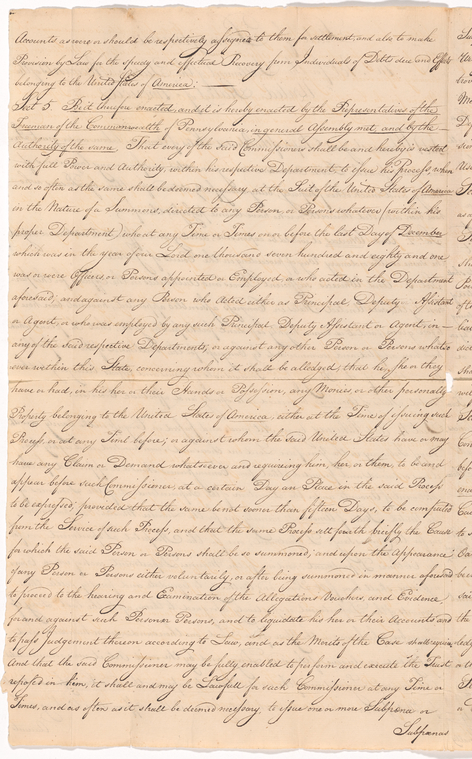 Accounts, as were or should be respectively assigned to them for settlement, and also to make
Provision by Law for the speedy and effectual Recovery from Individuals of Debts due and Effects
belonging to the United States of America:
Sect 5. Be it therefore enacted, and it is hereby enacted by the Representatives of the
Freemen of the Commonwealth of Pennsylvania, in general Assembly met, and by the
Authority of the same, That every of the said Commissioners shall be and hereby is vested
with full Power and Authority, within his respective Department, to issue his Process, when
and so often as the same shall be deemed necessary, at the Suit of the United States of America
in the Nature of a Summons, directed to any Person, or Persons whatever (within his
proper Department) who at any Time or Times on or before the last Day of December
which was in the year of our Lord one thousand seven hundred and eighty and one
was or were Officers, or Persons appointed or Employed, or who acted in the Department
aforesaid; and against any Person who Acted either as Principal Deputy Assistant
or Agent, or who was employed by any such Principal Deputy Assistant or Agent, in
any of the said respective Departments, or against any other Person or Persons whatso
ever within this State, concerning whom it shall be alledged, that he, she or they
have or had, in his her or their Hands or Possession, any Monies, or other personal
Property belonging to the United States of America, either at the Time of issuing such
Process, or at any Time before; or against whom the said United States have or may
have any Claim or Demand whatsoever and requiring him, her, or them, to be and
appear before such Commissioner, at a certain Day and Place in the said Process
to be expressed, provided that the same be not sooner than fifteen Days, to be computed
from the Service of such Process, and that the same Process sett fourth briefly the Cause
for which the said Person or Persons shall be so summoned; and upon the Appearance
of any Person or Persons either voluntarily, or after being summoned in manner aforesaid
to proceed to the hearing and Examination of the Allegations Vouchers, and Evidence,
for and against such Person or Persons, and to liquidate his her or their Accounts and
to pass Judgement thereon according to Law, and as the Merits of the Case shall require
And that the said Commissioner may be fully enabled to perform and execute the Trust
reposed in him, it shall and may be Lawfull for each Commissioner at any Time or
Times, and as often as it shall be deemed necessary, to issue one or more Subpœna or
Subpœnas